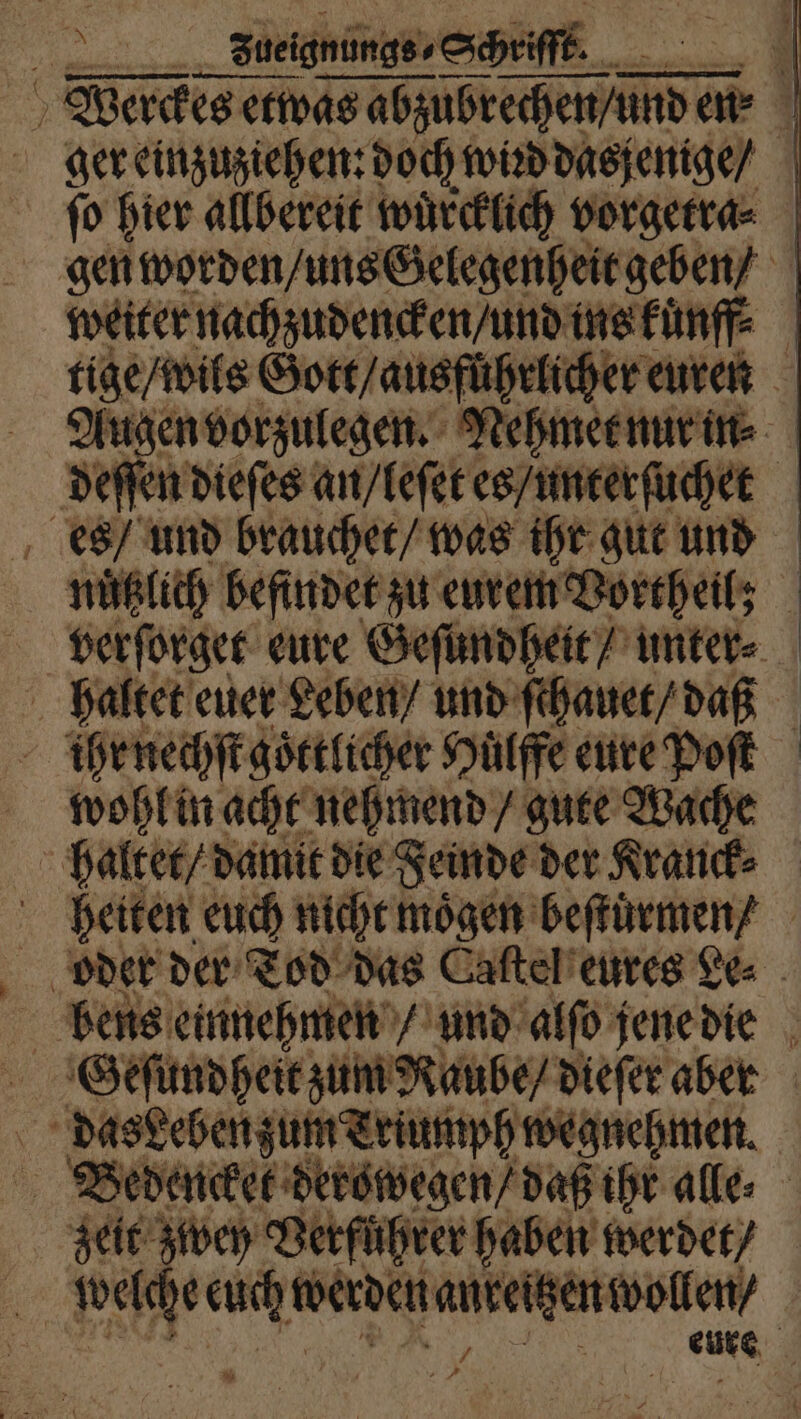 Zueignungs⸗Schrifft.
Werckes etwas abzubrechen/und en⸗
ger einzuziehen: doch wird dasjenige/
ſo hier allbereit wuͤrcklich vorgetra⸗
gen worden/uns Gelegenheit geben/
weiter nachzudencken/und ins kuͤnff⸗
tige/wils Gott/ausfuͤhrlicher euren
Augen vorzulegen. Nehmet nur in⸗
deſſen dieſes an/leſet es/unterſuchet
es/ und brauchet/ was ihr gut und
nuͤtzlich befindet zu eurem Vortheil;
verſorget eure Geſundheit/ unter⸗
haltet euer Leben/ und ſchauet/ daß
ihr nechſt goͤttlicher Huͤlffe eure Poſt
wohl in acht nehmend/ gute Wache
haltet/ damit die Feinde der Kranck⸗
heiten euch nicht moͤgen beſtuͤrmen/
oder der Tod das Caſtel eures Le⸗
bens einnehmen / und alſo jene die
Geſundheit zum Raube/ dieſer aber
das Leben zum Triumph wegnehmen.
Bedencket derowegen/ daß ihr alle⸗
zeit zwey Verfuͤhrer haben werdet/
welche euch werden anreitzen wollen/
eure